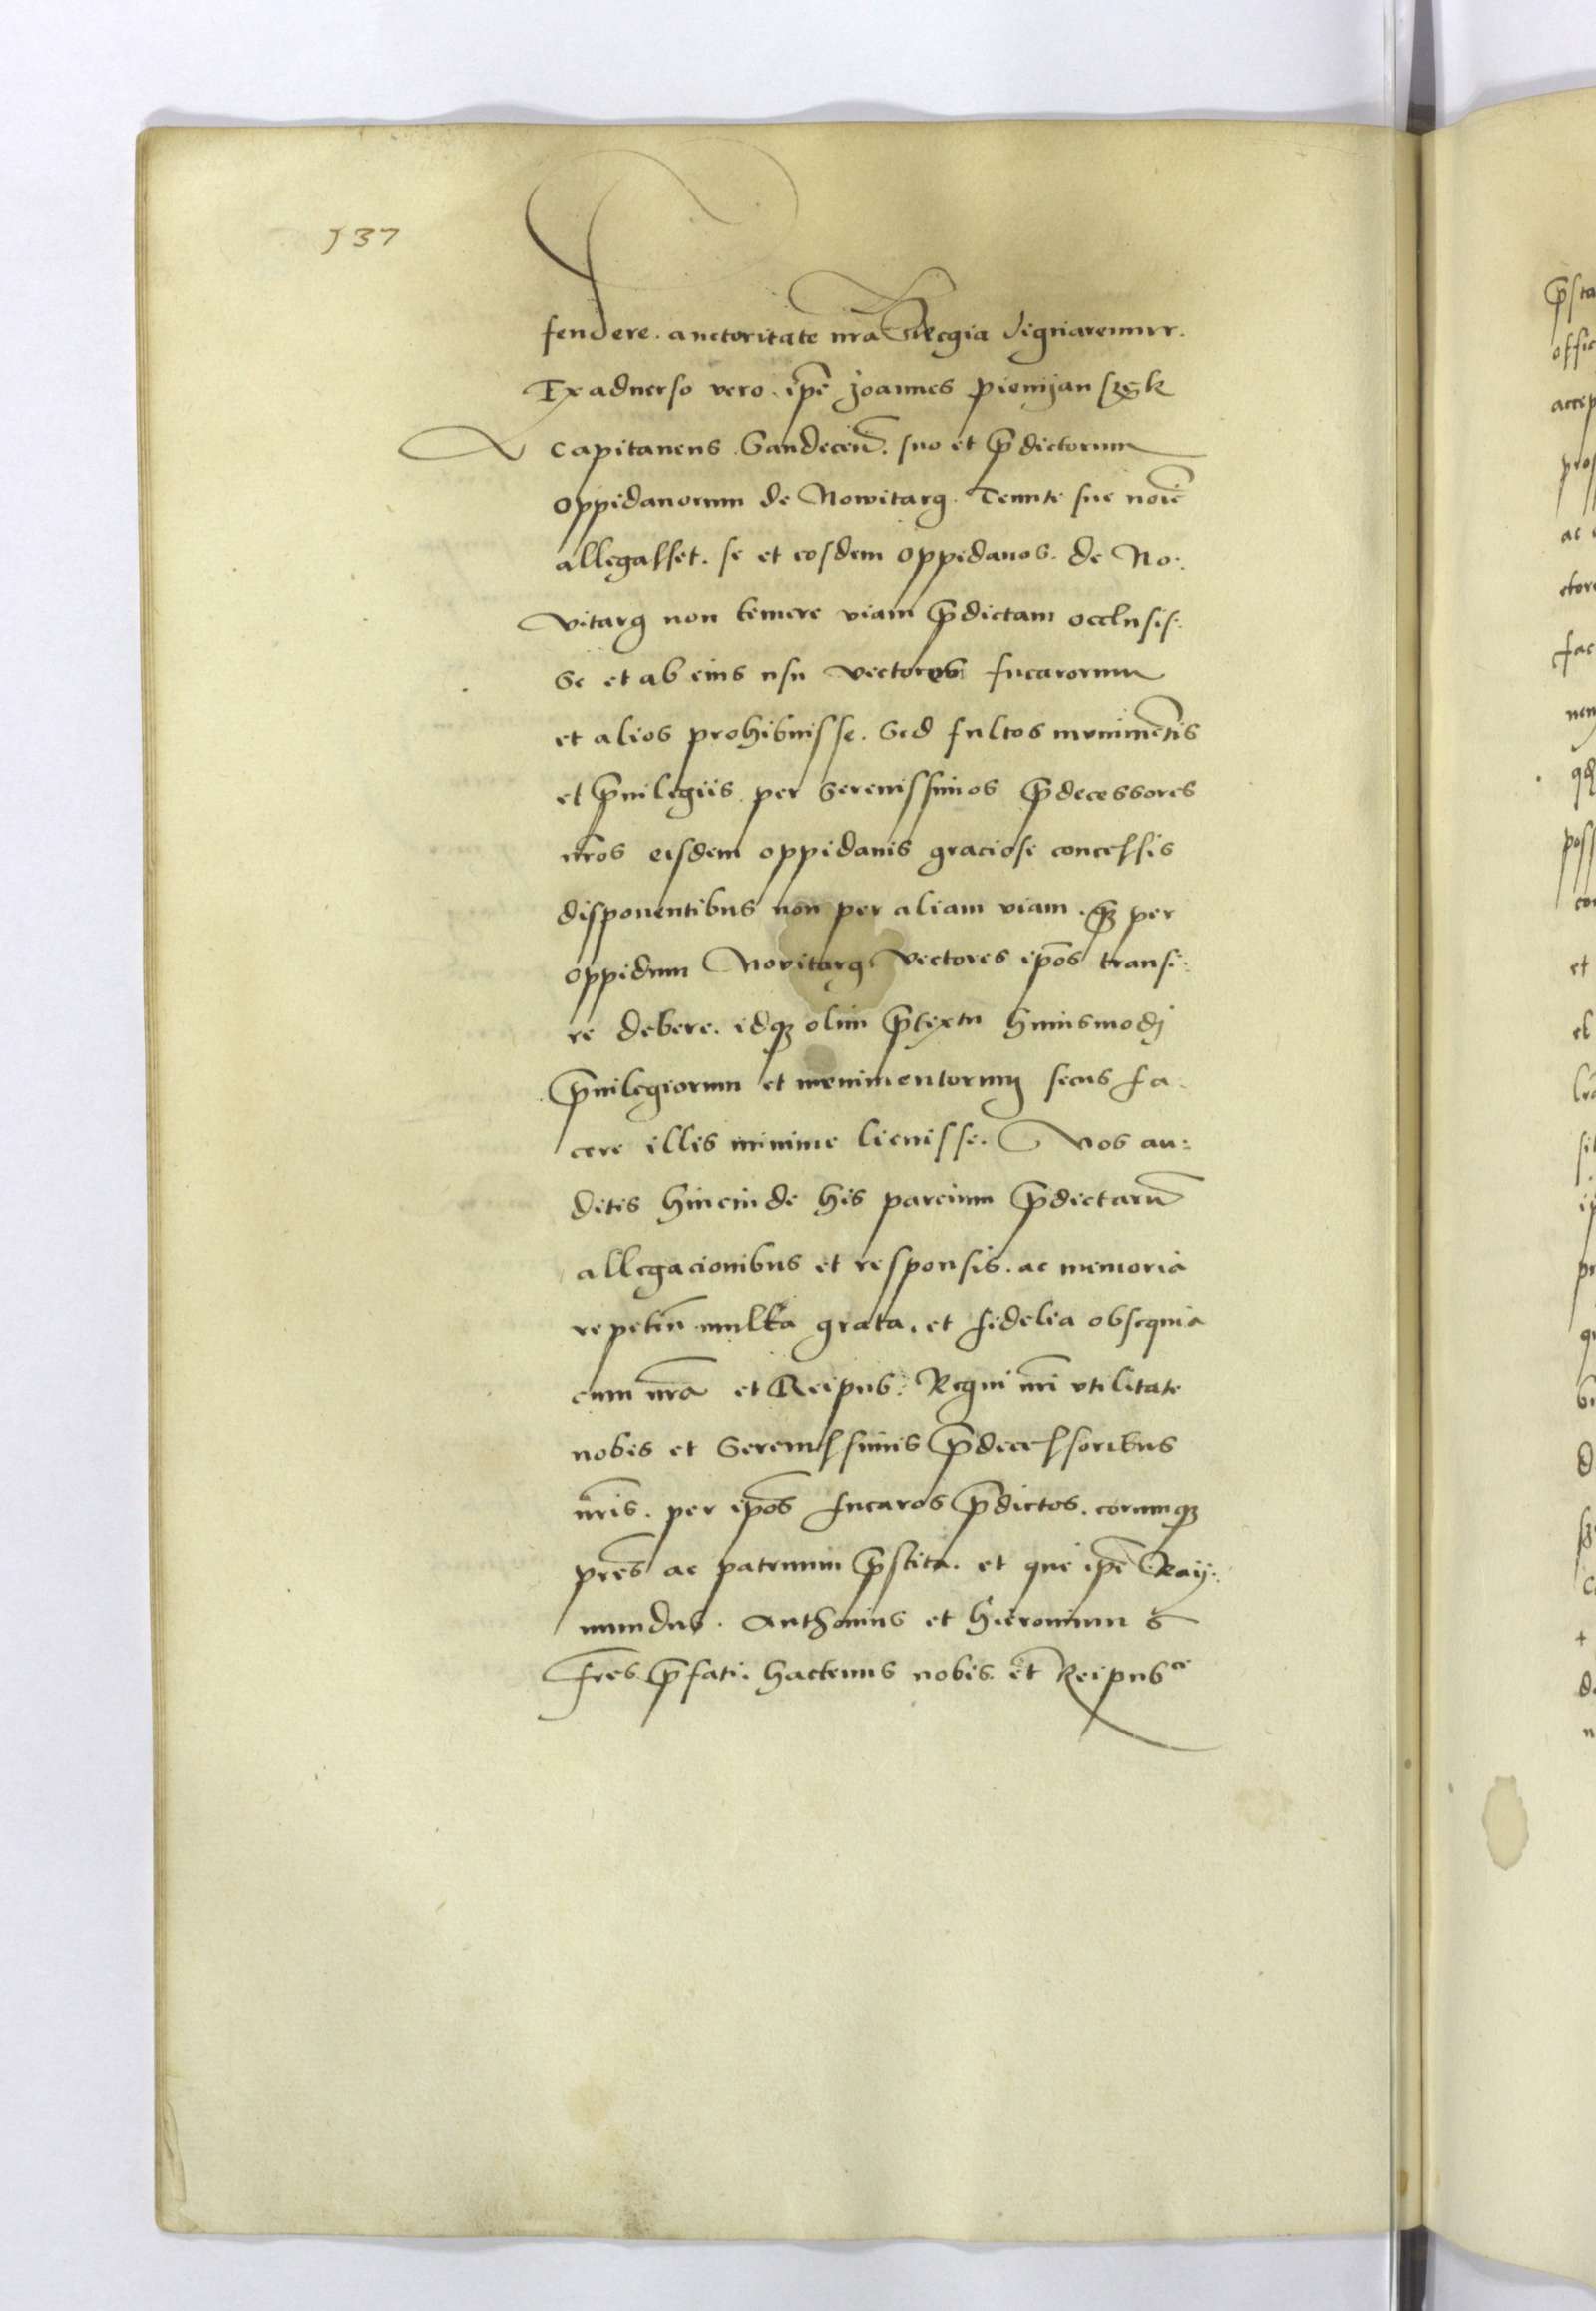 137
fendere. auctoritate nr̃a Regia dignaremur.
Ex aduerso vero. ip̃e Joannes pienijan szek
Capitaneus Sandeceñ. suo et p̃dictorum
oppidanorum de Nowitarg. Tenute sue noĩe
allegasset. se et eosdem oppidanos. de No:
vitarg non temere viam p̃dictam occlusis:
se et ab eius usu vectores fucarorum
et alios prohibuisse. Sed fultos munimẽtis
et p̃uilegiis per Serenissimos p̃decessores
nr̃os eisdem oppidanis graciose concessis
disponentibus non per aliam viam. q̃ȝ per
oppidum Novitarg. Vectores ip̃os transi:
re debere. idqȝ olim p̃textu huiusmodj
p̃uilegiorum et munimentorum secus fa.
cere illis minime licuisse. Nos au:
ditis hincinde his parcium p̃dictarũ
allegacionibus et responsis. ac memoria
repetiũ multa grata. et fidelia obsequia
cum nr̃a et Reipub: Regni nr̃i vtilitate
nobis et Serenissimis p̃decessoribus
nr̃is. per ip̃os fucaros p̃dictos. eorumqȝ
pr̃es ac patruum p̃stita. et que ip̃e Raÿ:
mundus. Anthonius et Hieronimus
fr̃es p̃fati. hactenus nobis. et Reipubce